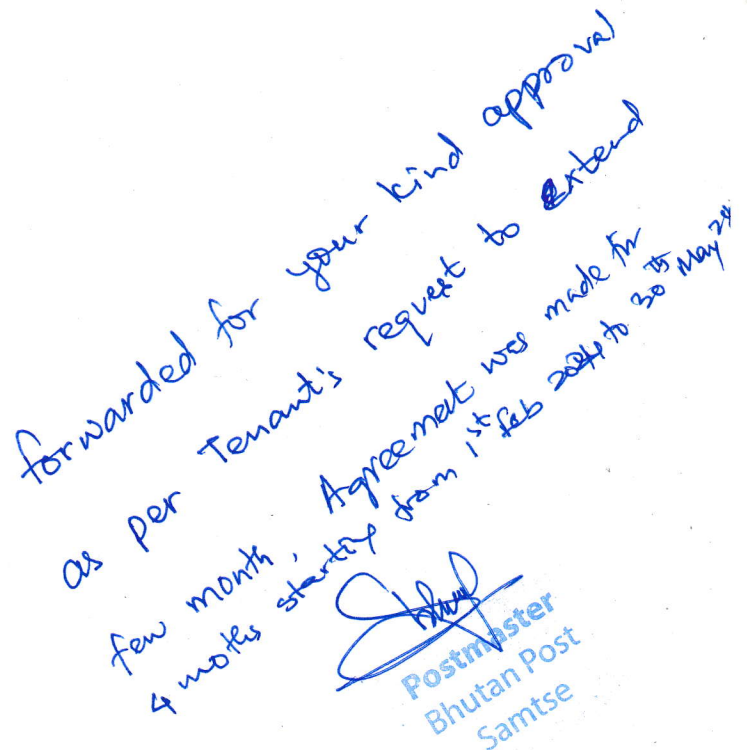 forwarded for your kind approval
as per Tenant's request to extend
few month, Agreemet was made for
4 moths starting from 1st Feb 2024 to 30th May 24
Postmaster
Bhutan Post
Samtse